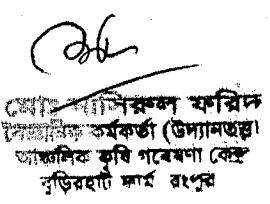 মোঃ নাসিরুল ফরিদ
বৈজ্ঞানিক কর্মকর্তা (উদ্যানতত্ত্ব)
আঞ্চলিক কৃষি গবেষণা কেন্দ্র
বুড়িরহাট ফার্ম রংপুর